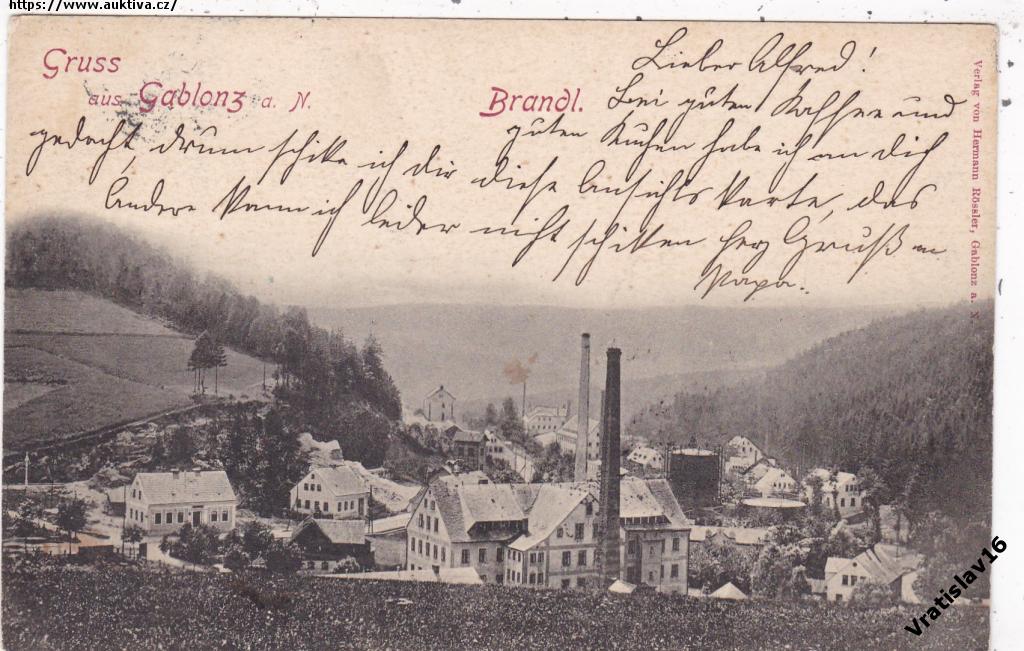 https://www.auktiva.cz/
Gruss
aus Gablonz a. N.
Brandl.
Lieber Alfred!
Bei guten Kaffee und
guten Kuchen habe ich an dich
gedacht, drum schike ich dir diese Ansichts Karte, das
Andere kann ich leider nicht schikken herz Gruß
Papa.
Verlag von Hermann Rössler, Gablonz a. N.
Vratislav16